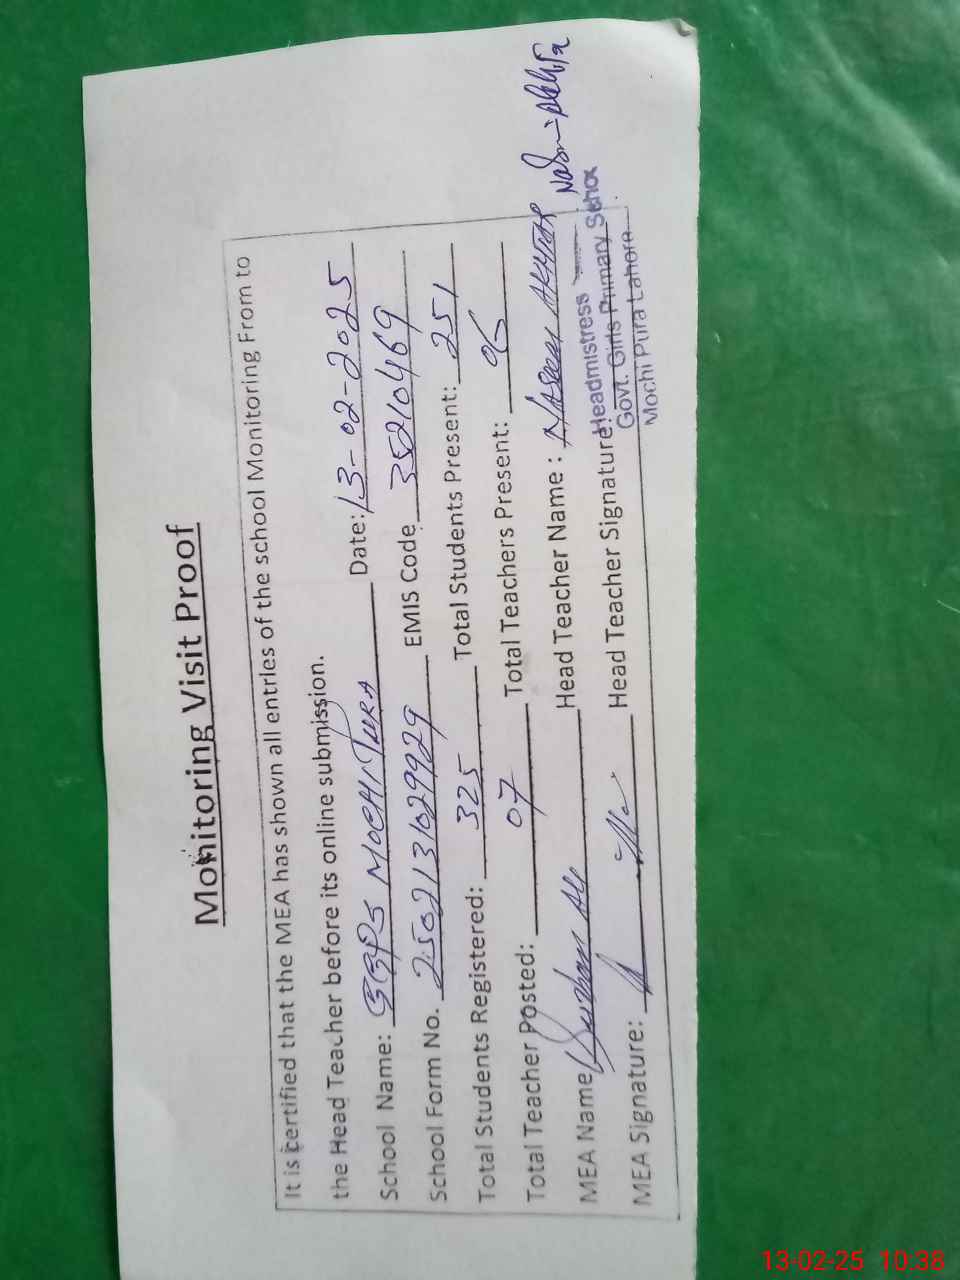 Monitoring Visit Proof
It is certified that the MEA has shown all entries of the school Monitoring From to
the Head Teacher before its online submission.
School Name: GGPS MOCHI PURA Date: 13-02-2025
School Form No. 2502131029929 EMIS Code 35210469
Total Students Registered: 325 Total Students Present: 251
Total Teacher Posted: 07 Total Teachers Present: 06
MEA Name Ali Head Teacher Name : NASEEM AKHTAR
MEA Signature: Head Teacher Signature:
Headmistress
Govt. Girls Primary School
Mochi Pura Lahore
13-02-25 10:38